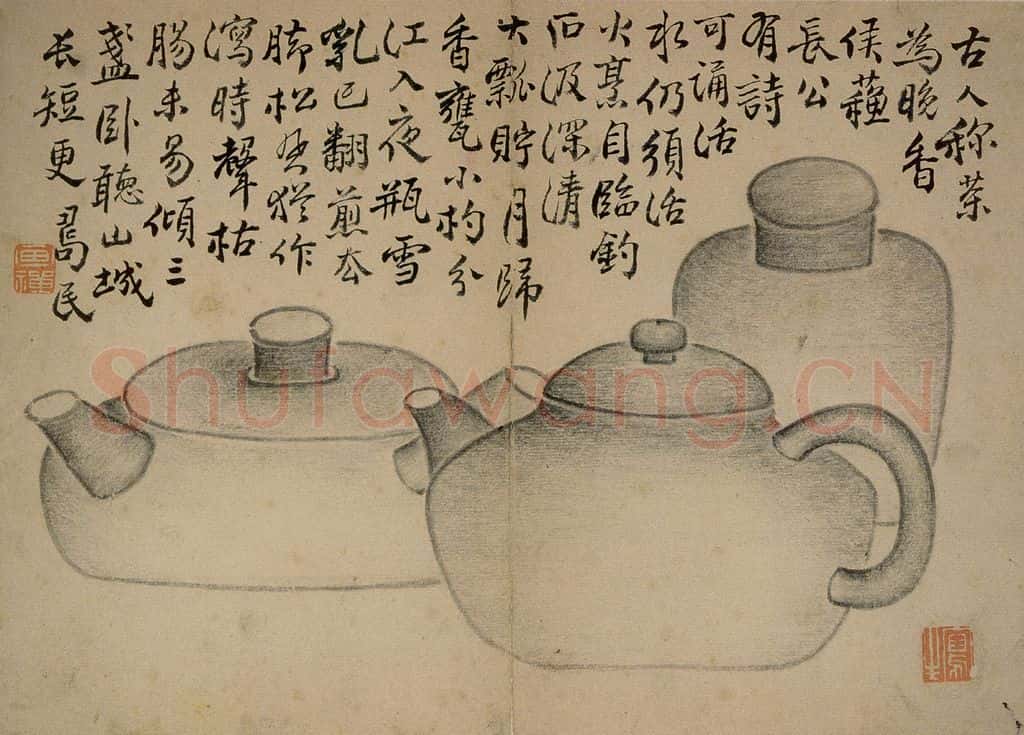 古人称茶
為晚香
侯蘓
長公
有詩
可誦活
水仍須活
火烹自臨釣
石汲深清
大瓢貯月歸
香甕小杓分
江入夜瓶雪
乳已翻煎处
腳松風猶作
瀉時聲枯
腸未易傾三
盞卧聽山城
长短更
Shufawang.CN